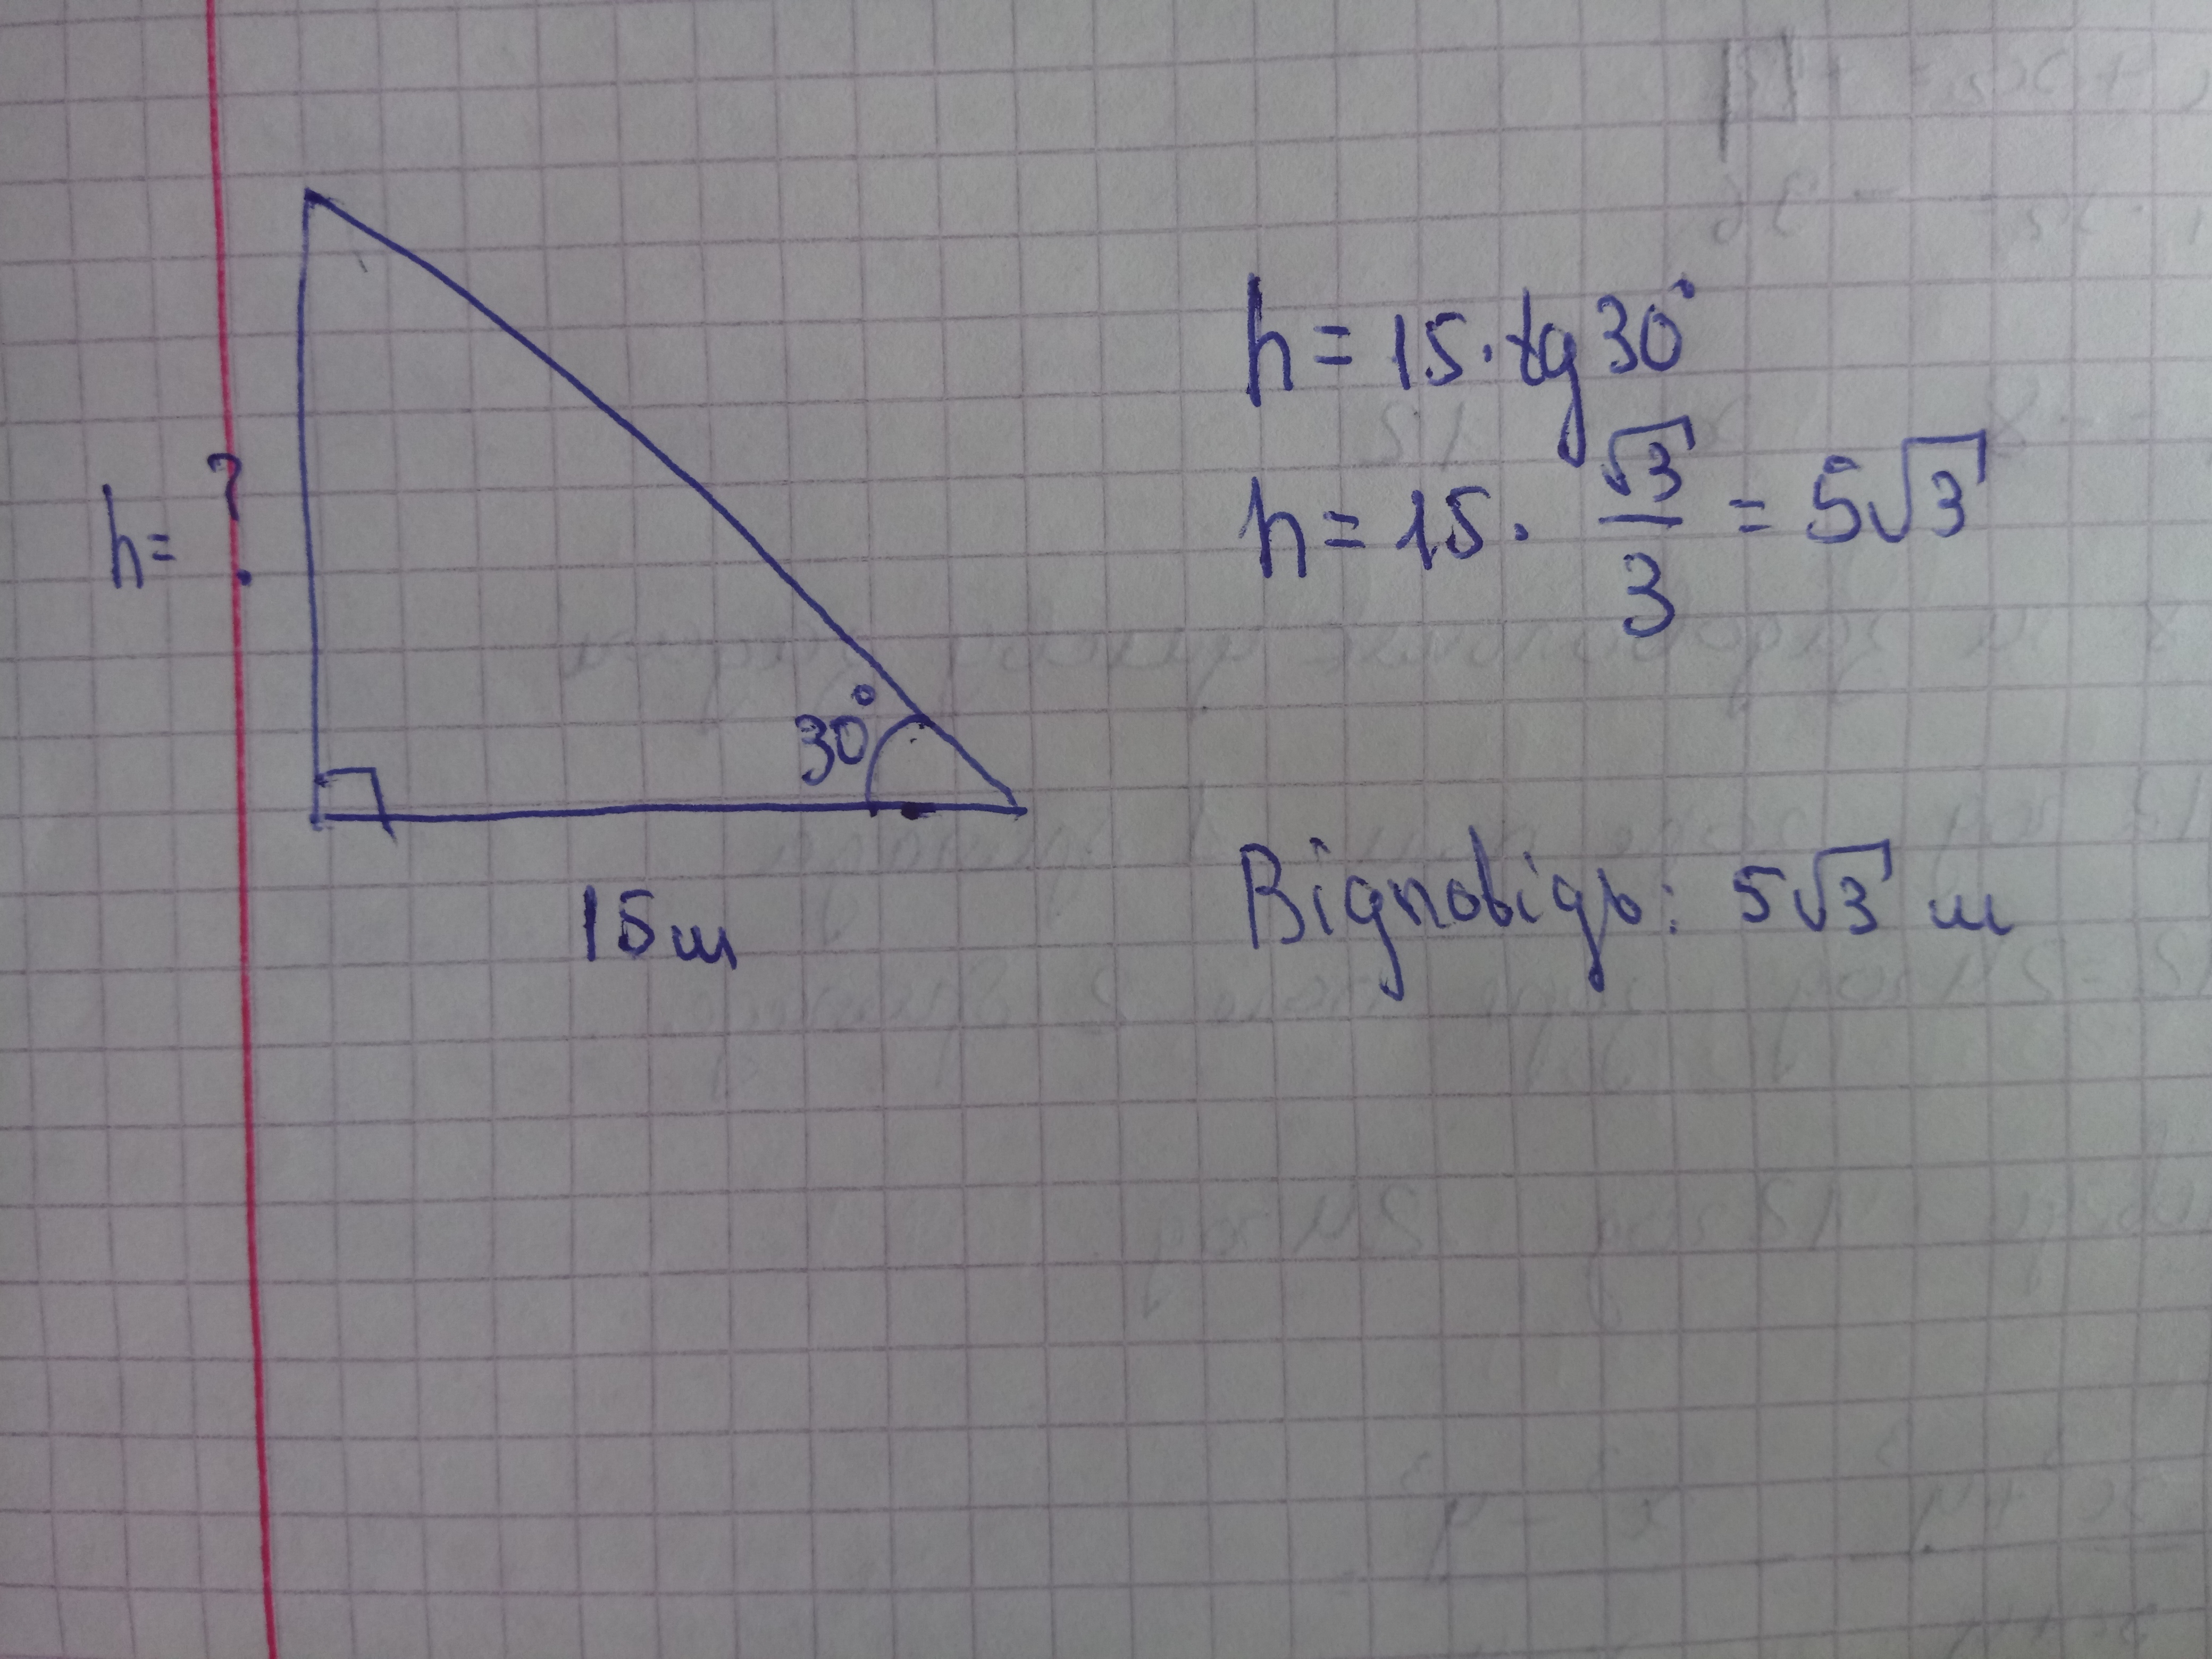 h = ?
30°
15 м
h = 15 · tg 30°
h = 15 · √3/3 = 5√3
Відповідь: 5√3 м